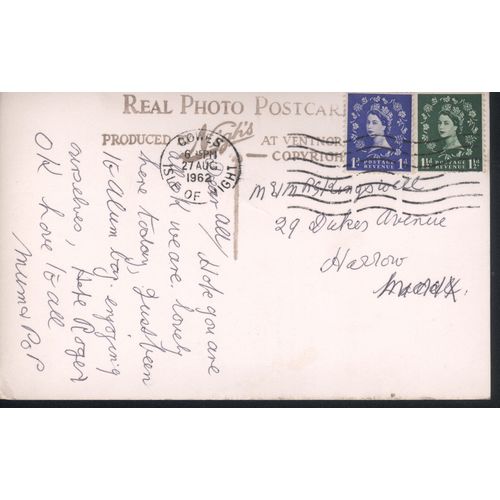 REAL PHOTO POSTCARD
PRODUCED Nigh's AT VENTNOR
COPYRIGHT
COWES
6 15PM
27 AUG
1962
ISLE OF WIGHT
POSTAGE REVENUE
1D 1D
POSTAGE REVENUE
1½D 1½D
Dear all Hope you are
all O.K. we are. lovely
here today, Just been
to Alum bay. enjoying
ourselves, Hope Roger
OK love to all
Mum & Pop
Mr & Mrs Kingswell
29 Dukes Avenue
Harrow
Middx.